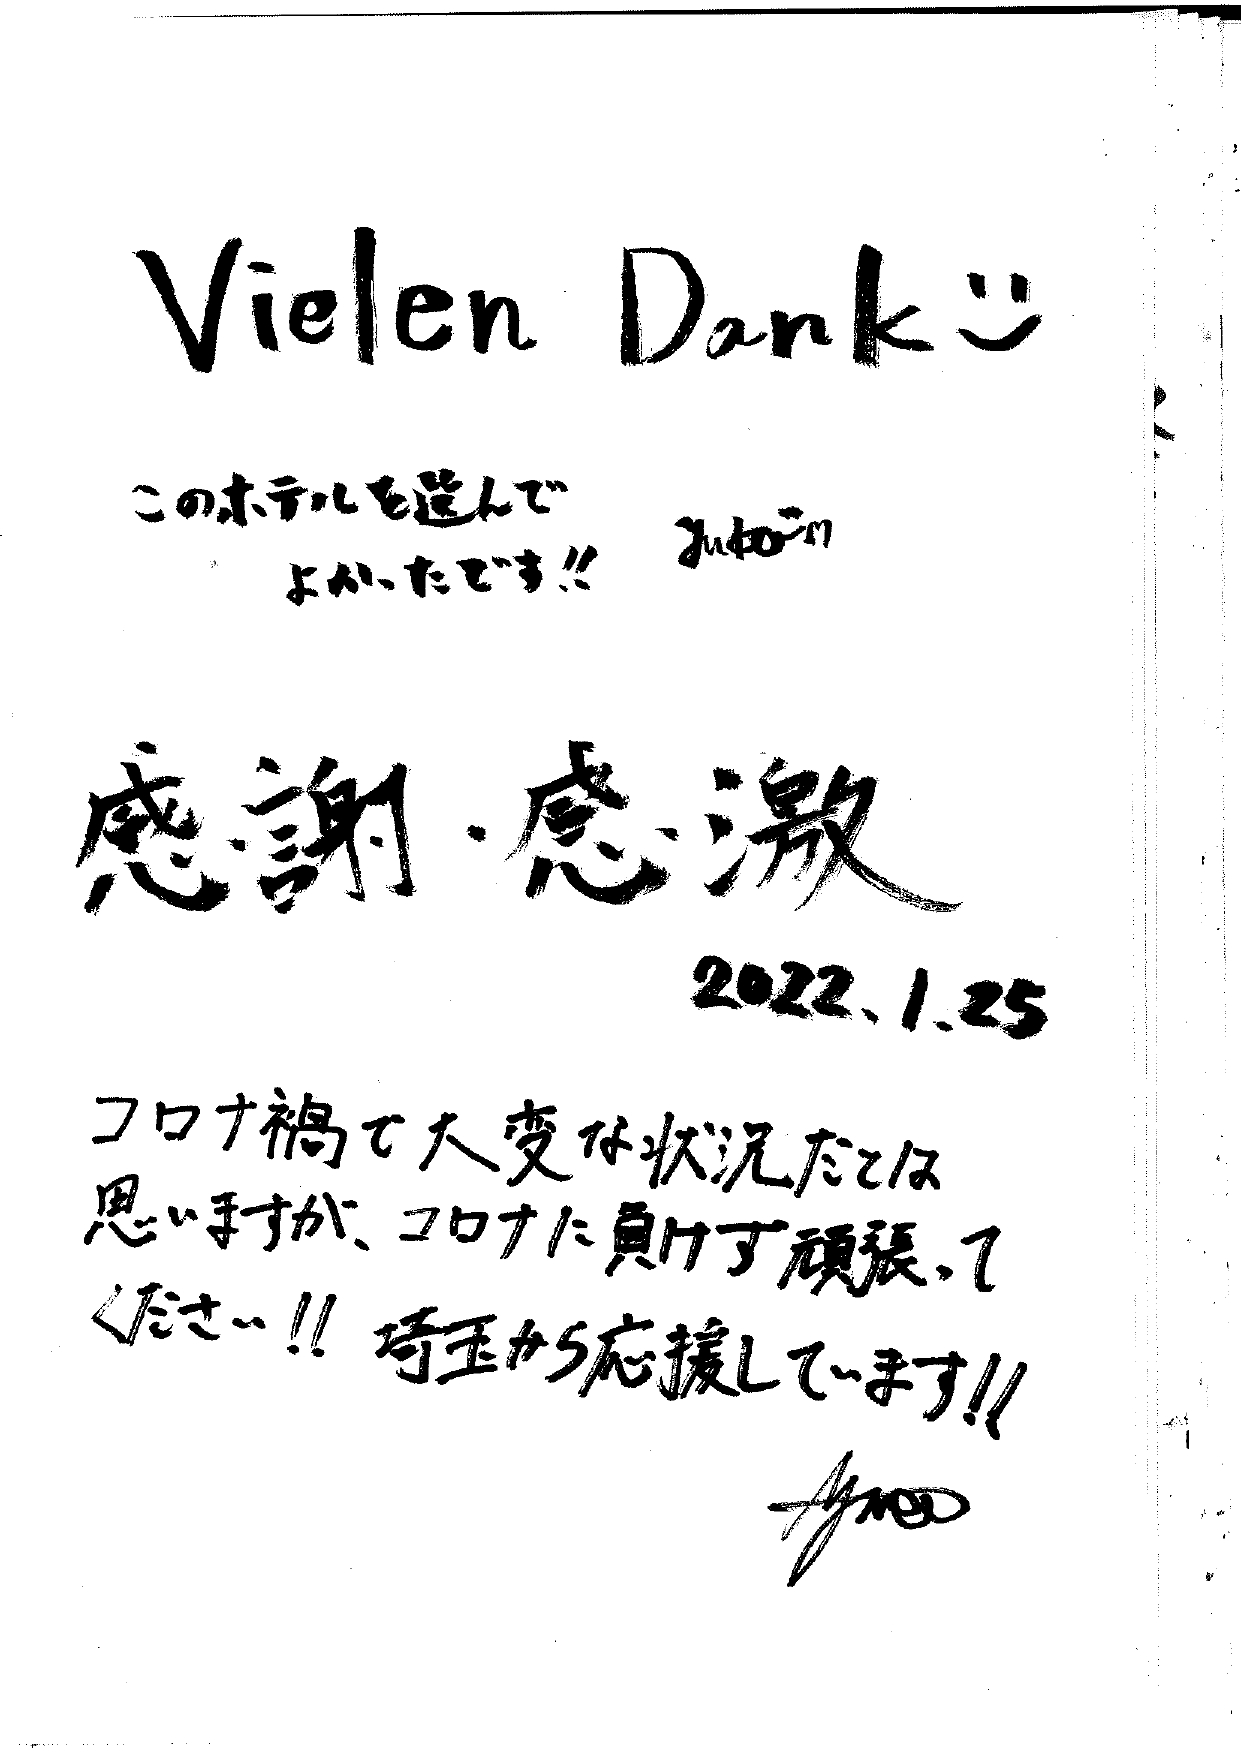 Vielen Dank
このホテルを選んで
よかったです!!
感謝・感激
2022.1.25
コロナ禍で大変な状況だとは
思いますが、コロナに負けず頑張って
ください!! 埼玉から応援しています!!